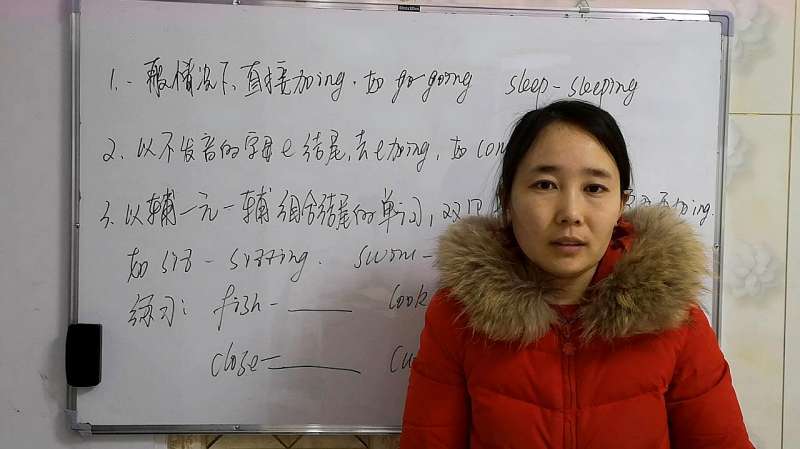 1. 一般情况下，直接加ing. 如 go-going sleep-sleeping
2、以不发音的字母e结尾，去e加ing，如 com
3. 以辅一元一辅组合结尾的单词，双写 加ing.
如 sit - sitting. swim-
练习： fish- ______ cook
close- ______ cu